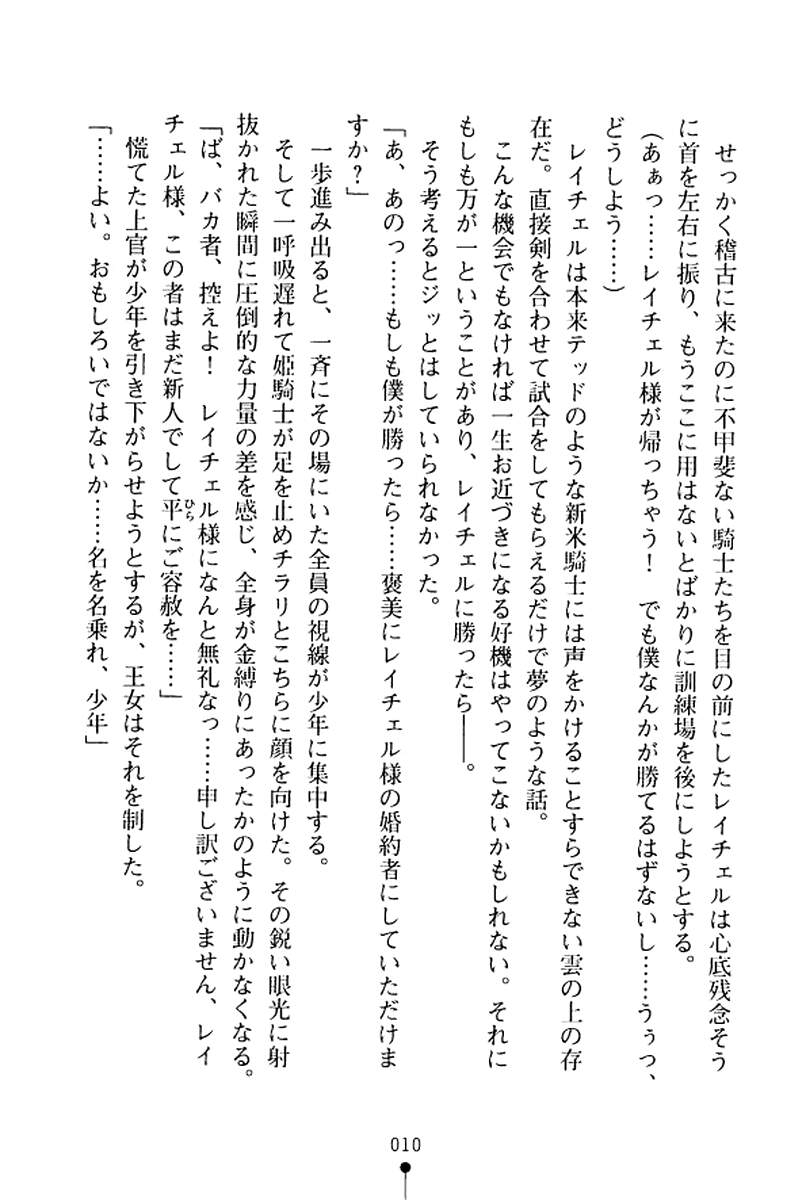 せっかく稽古に来たのに不甲斐ない騎士たちを目の前にしたレイチェルは心底残念そう
に首を左右に振り、もうここに用はないとばかりに訓練場を後にしようとする。
(あぁっ……レイチェル様が帰っちゃう！　でも僕なんかが勝てるはずないし……うぅっ、
どうしよう……)
レイチェルは本来テッドのような新米騎士には声をかけることすらできない雲の上の存
在だ。直接剣を合わせて試合をしてもらえるだけで夢のような話。
こんな機会でもなければ一生お近づきになる好機はやってこないかもしれない。それに
もしも万が一ということがあり、レイチェルに勝ったら――。
そう考えるとジッとはしていられなかった。
「あ、あのっ……もしも僕が勝ったら……褒美にレイチェル様の婚約者にしていただけま
すか？」
一歩進み出ると、一斉にその場にいた全員の視線が少年に集中する。
そして一呼吸遅れて姫騎士が足を止めチラリとこちらに顔を向けた。その鋭い眼光に射
抜かれた瞬間に圧倒的な力量の差を感じ、全身が金縛りにあったかのように動かなくなる。
「ば、バカ者、控えよ！　レイチェル様になんと無礼なっ……申し訳ございません、レイ
チェル様、この者はまだ新人でして平にご容赦を……」
ひら
慌てた上官が少年を引き下がらせようとするが、王女はそれを制した。
「……よい。おもしろいではないか……名を名乗れ、少年」
010